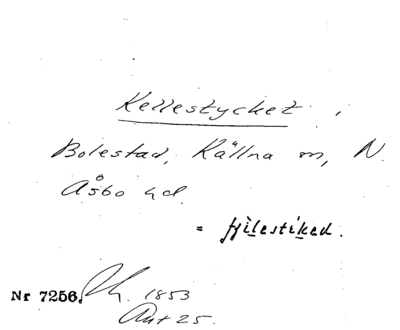 Kellestycket.
Bolestad, Källna sn, N.
Åsbo hd.
= fjilestiked.
Nr 7256. 1853
Akt 25.